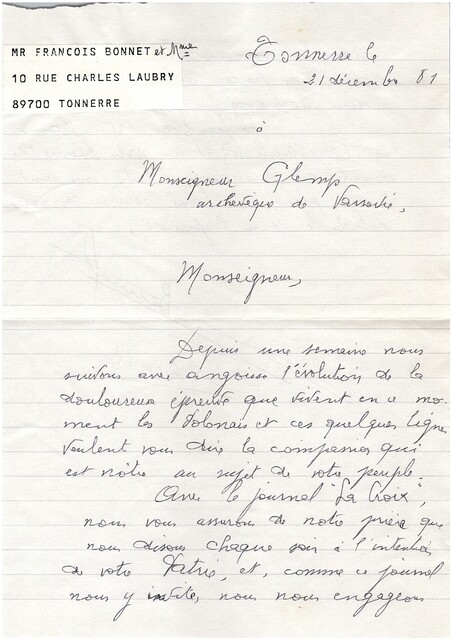 MR FRANCOIS BONNET et Mme
10 RUE CHARLES LAUBRY
89700 TONNERRE
Tonnerre le
21 décembre 81
à
Monseigneur Glemp
archevêque de Varsovie,
Monseigneur,
Depuis une semaine nous
suivons avec angoisse l'évolution de la
douloureuse épreuve que vivent en ce mo-
ment les Polonais et ces quelques lignes
veulent vous dire la compassion qui
est nôtre au sujet de votre peuple.
Avec le journal "La Croix",
nous vous assurons de notre prière que
nous disons chaque soir à l'intention
de votre Patrie, et, comme ce journal
nous y invite, nous nous engageons